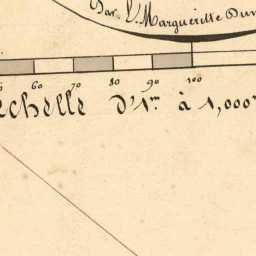 Par L. Margueritte Du
60 70 80 90 100
chelle D'1m à 1,000